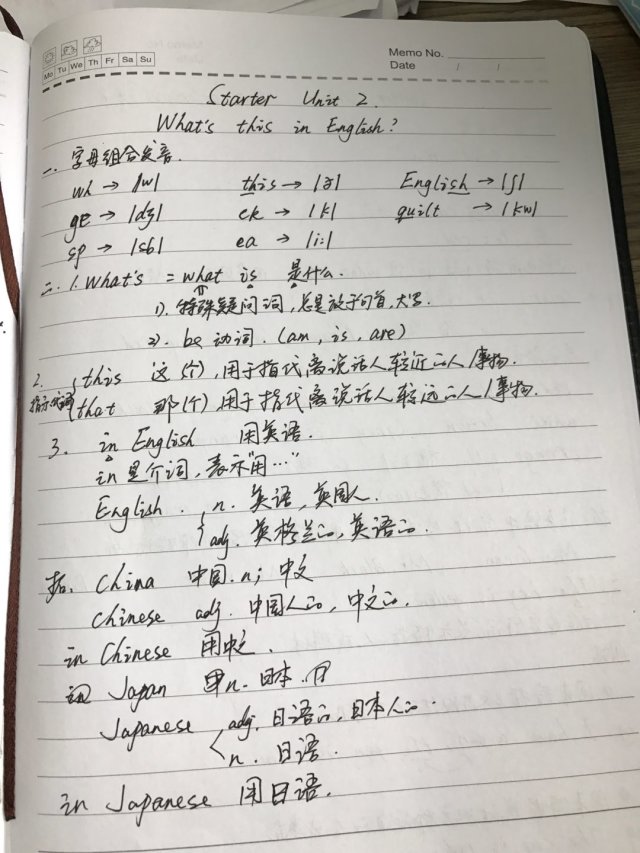 Memo No.
Mo Tu We Th Fr Sa Su
Date / /
Starter Unit 2.
What's this in English?
一. 字母组合发音.
wh → /w/ this → /ð/ English → /ʃ/
ge → /dʒ/ ck → /k/ quilt → /kw/
sp → /sb/ ea → /i:/
二. 1. What's = what is 是什么.
1). 特殊疑问词, 总是放于句首, 大写.
2). be 动词. (am, is, are)
2. this 这(个), 用于指代离说话人较近的人/事物.
指示代词 that 那(个) 用于指代离说话人较远的人/事物.
3. in English 用英语.
in 是介词, 表示"用…"
English. n. 英语, 英国人.
adj. 英格兰的, 英语的.
拓. China 中国. n; 中文
Chinese adj. 中国人的, 中文的.
in Chinese 用中文.
Japan n. 日本.
Japanese adj. 日语的, 日本人的.
n. 日语.
in Japanese 用日语.